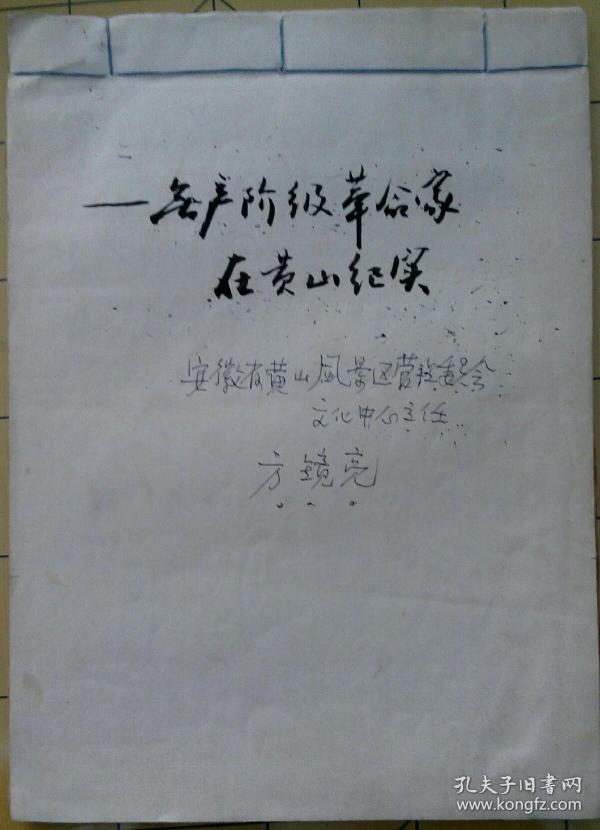 —无产阶级革命家
在黄山纪实
安徽省黄山風景区管理委员会
文化中心主任
方镜亮
孔夫子旧书网
www.kongfz.com